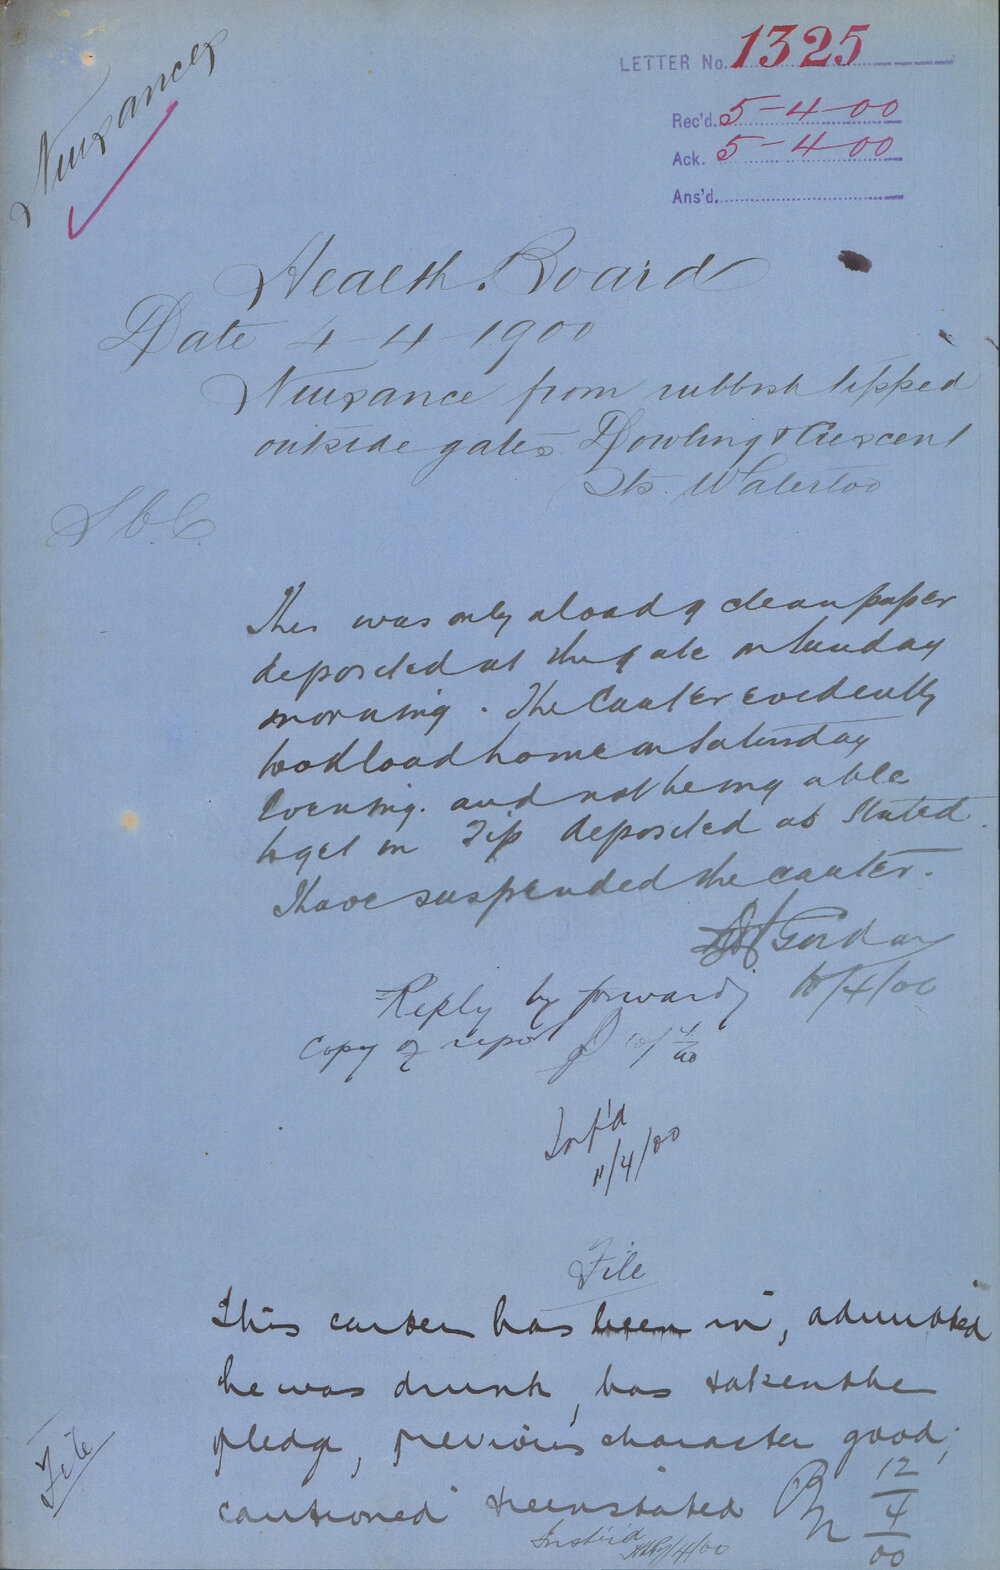 Nuisances
LETTER No. 1325
Rec'd. 5-4-00
Ack. 5-4-00
Ans'd.
Health Board
Date 4-4-1900
Nuisance from rubbish tipped
outside gates Dowling & Crescent
Sts. Waterloo
This was only a load of clean paper
deposited at the gate on Sunday
morning. The Carter evidently
took load home on Saturday
Evening. and not being able
to get in Tip deposited as Stated.
I have suspended the carter.
Gordon
10/4/00
Reply by forwardg
copy of report 10/4/00
Inf'd
11/4/00
File
This carter has been in, admitted
he was drunk, has taken the
pledge, previous character good;
cautioned & reinstated
12/4/00
File
Inst'd /4/00